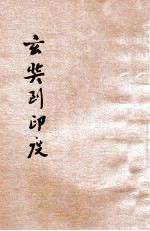 玄奘到印度